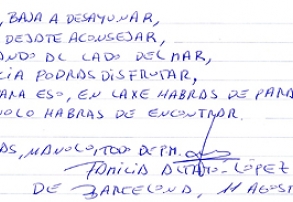 , BAJA A DESAYUNAR,
DEJATE ACONSEJAR,
ANDO DL LADO DEL MAR,
CIA PODRAS DISFRUTAR,
PARA ESO, EN LAXE HABRAS DE PARA
NOLO HABRAS DE ENCONTRAR.
AS, MANOLO, TODO DE P.M.
FAMILIA LÓPEZ
DE BARCELONA, 11 AGOST